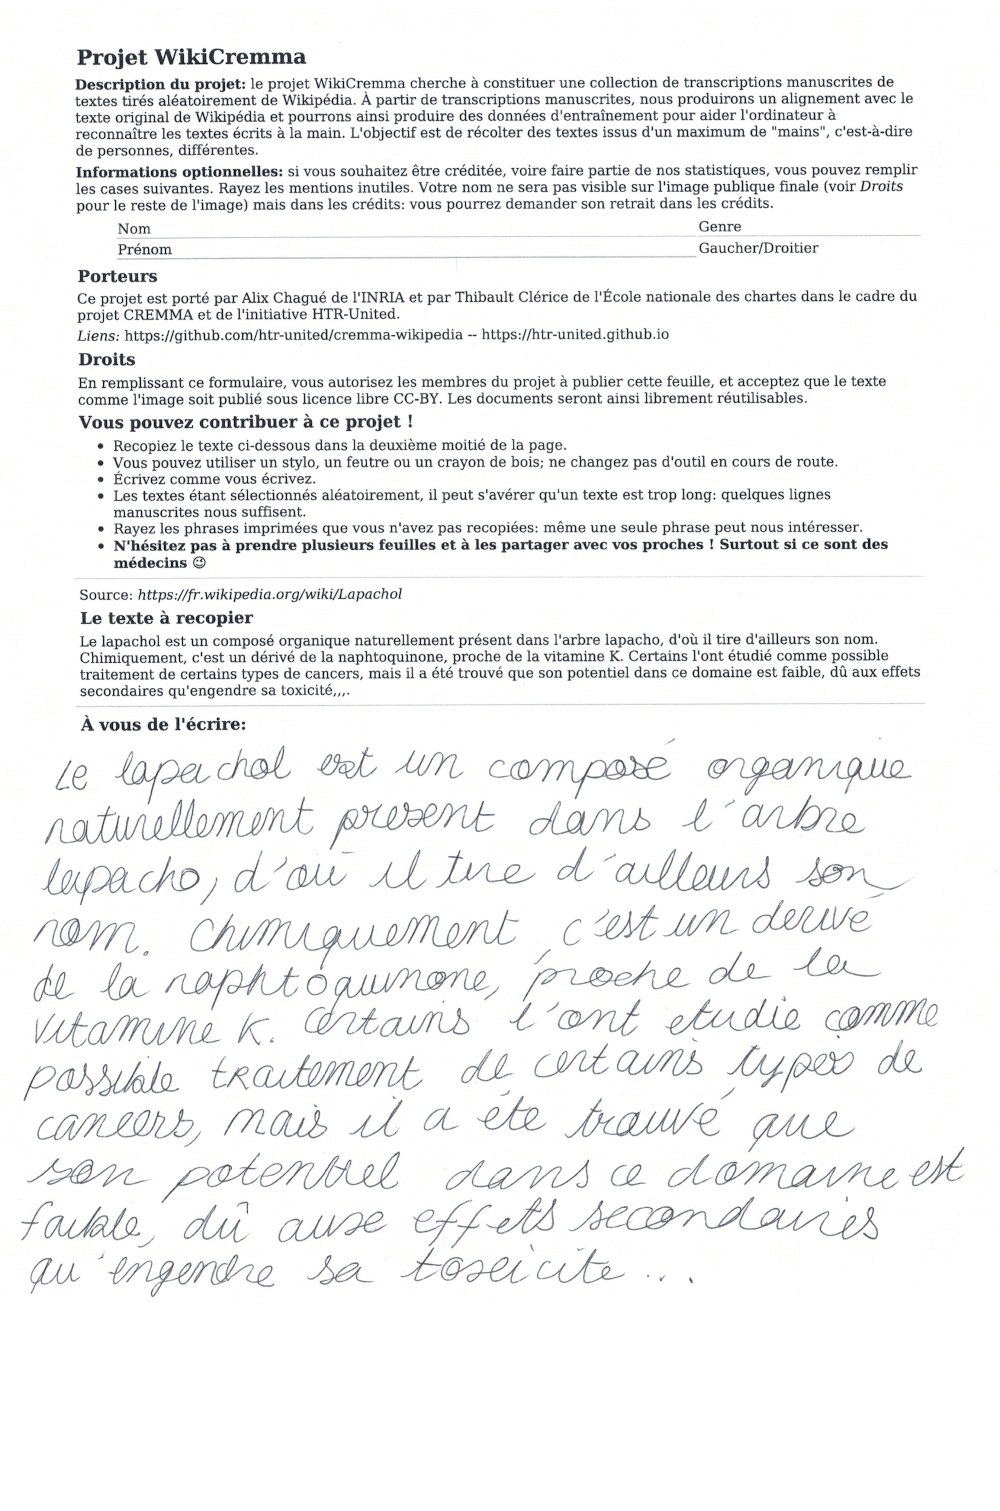 Projet WikiCremma
Description du projet: le projet WikiCremma cherche à constituer une collection de transcriptions manuscrites de
textes tirés aléatoirement de Wikipédia. À partir de transcriptions manuscrites, nous produirons un alignement avec le
texte original de Wikipédia et pourrons ainsi produire des données d'entraînement pour aider l'ordinateur à
reconnaître les textes écrits à la main. L'objectif est de récolter des textes issus d'un maximum de "mains", c'est-à-dire
de personnes, différentes.
Informations optionnelles: si vous souhaitez être créditée, voire faire partie de nos statistiques, vous pouvez remplir
les cases suivantes. Rayez les mentions inutiles. Votre nom ne sera pas visible sur l'image publique finale (voir Droits
pour le reste de l'image) mais dans les crédits: vous pourrez demander son retrait dans les crédits.
Nom Genre
Prénom Gaucher/Droitier
Porteurs
Ce projet est porté par Alix Chagué de l'INRIA et par Thibault Clérice de l'École nationale des chartes dans le cadre du
projet CREMMA et de l'initiative HTR-United.
Liens: https://github.com/htr-united/cremma-wikipedia -- https://htr-united.github.io
Droits
En remplissant ce formulaire, vous autorisez les membres du projet à publier cette feuille, et acceptez que le texte
comme l'image soit publié sous licence libre CC-BY. Les documents seront ainsi librement réutilisables.
Vous pouvez contribuer à ce projet !
• Recopiez le texte ci-dessous dans la deuxième moitié de la page.
• Vous pouvez utiliser un stylo, un feutre ou un crayon de bois; ne changez pas d'outil en cours de route.
• Écrivez comme vous écrivez.
• Les textes étant sélectionnés aléatoirement, il peut s'avérer qu'un texte est trop long: quelques lignes
manuscrites nous suffisent.
• Rayez les phrases imprimées que vous n'avez pas recopiées: même une seule phrase peut nous intéresser.
• N'hésitez pas à prendre plusieurs feuilles et à les partager avec vos proches ! Surtout si ce sont des
médecins ☺
Source: https://fr.wikipedia.org/wiki/Lapachol
Le texte à recopier
Le lapachol est un composé organique naturellement présent dans l'arbre lapacho, d'où il tire d'ailleurs son nom.
Chimiquement, c'est un dérivé de la naphtoquinone, proche de la vitamine K. Certains l'ont étudié comme possible
traitement de certains types de cancers, mais il a été trouvé que son potentiel dans ce domaine est faible, dû aux effets
secondaires qu'engendre sa toxicité,,,.
À vous de l'écrire:
Le lapachol est un composé organique
naturellement present dans l'arbre
lapacho, d'où il tire d'ailleurs son
nom. Chimiquement, c'est un derivé
de la naphtoquinone, proche de la
vitamine K. Certains l'ont etudie comme
possible traitement de certains types de
cancers, mais il a éte trouvé que
son potentiel dans ce domaine est
faible, dû aux effets secondaires
qu'engendre sa toxicite...